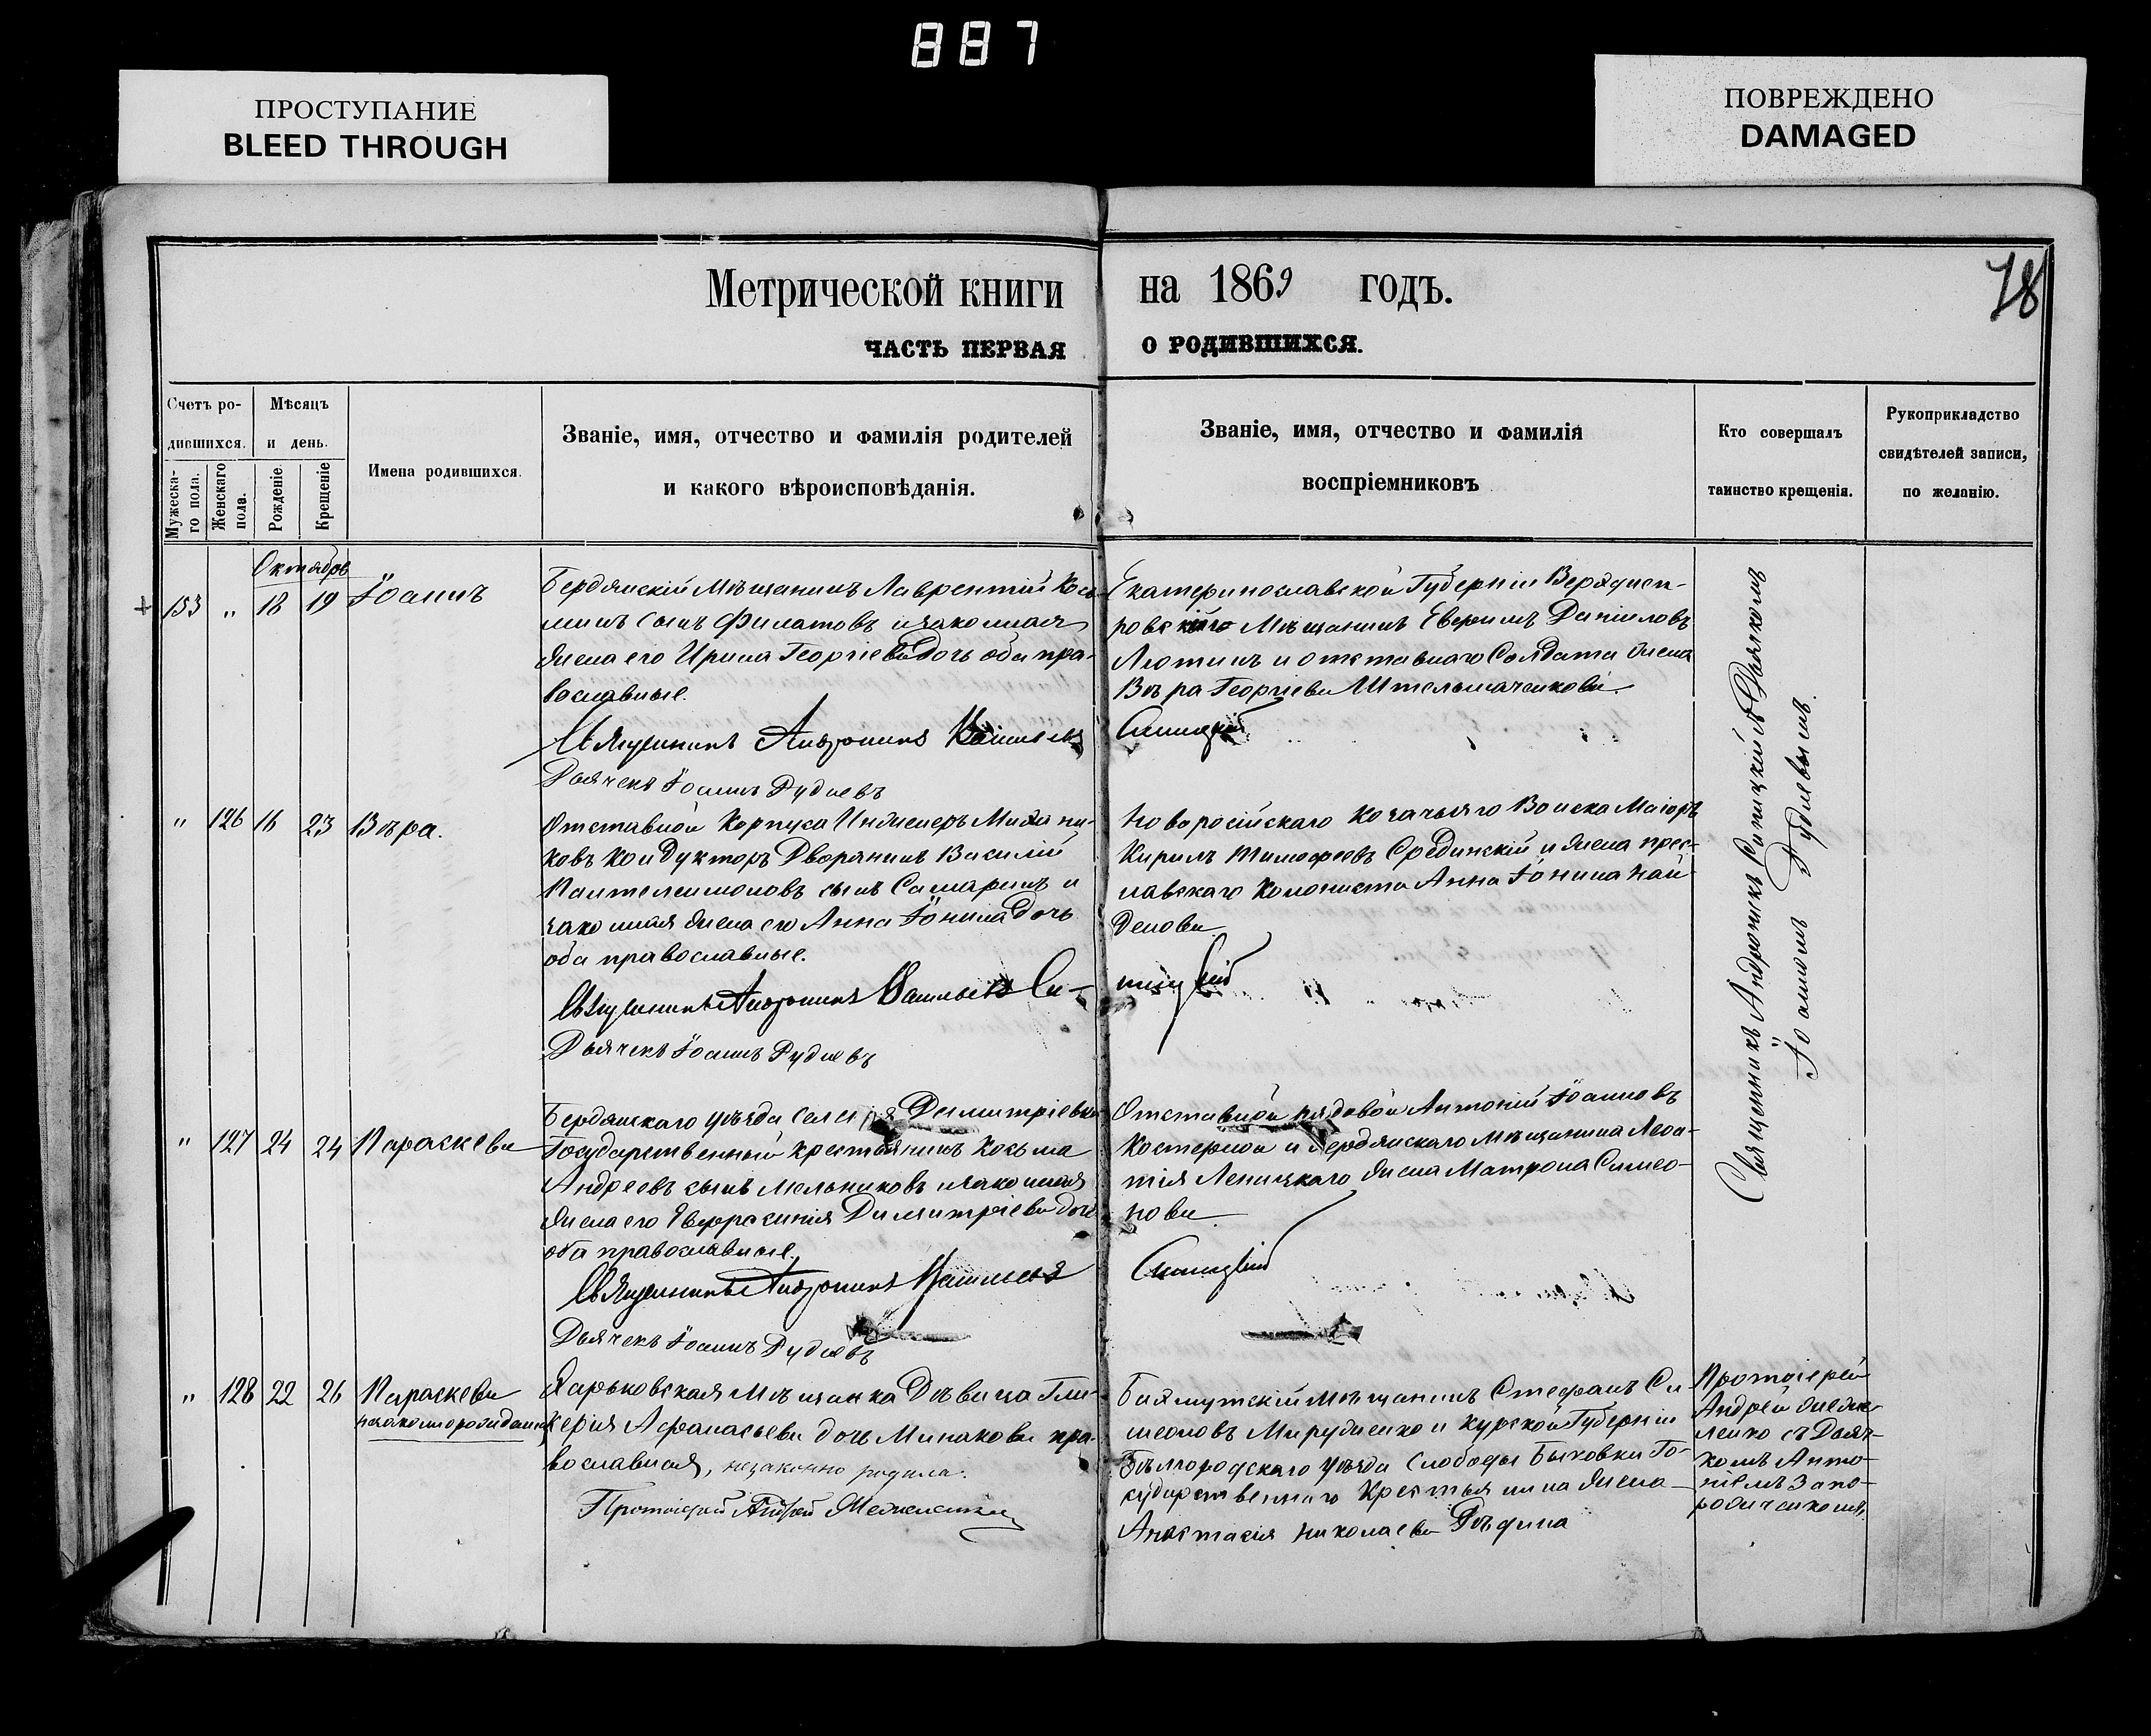 887
ПРОСТУПАНИЕ
BLEED THROUGH
ПОВРЕЖДЕНО
DAMAGED
Метрической книги на 1869 годъ.
78
ЧАСТЬ ПЕРВАЯ О РОДИВШИХСЯ.
Счетъ ро-
дившихся.
Мужеска-
го пола.
Женскаго
пола.
Мѣсяцъ
и день.
Рожденіе
Крещеніе
Имена родившихся.
Званіе, имя, отчество и фамилія родителей
и какого вѣроисповѣданія.
Званіе, имя, отчество и фамилія
воспріемниковъ
Кто совершалъ
таинство крещенія.
Рукоприкладство
свидѣтелей записи,
по желанію.
Октябрь
153 " 18 19 Іоаннъ
Бердянскій Мѣщанинъ Лаврентій Кось-
минъ сынъ Филатовъ и законная
жена его Ирина Георгіева дочь оба пра-
вославные.
Священникъ Андроникъ Васильевъ
Дьячекъ Іоаннъ Рудневъ
Екатеринославской Губерніи
Мѣщанинъ Евфимъ Даніиловъ
Лютинъ и отставнаго Солдата жена
Вѣра Георгіева Штельмаченкова
Синицкій
" 126 16 23 Вѣра.
Отставной Корпуса Инженеръ Механи-
ковъ Кондукторъ Дворянинъ Василій
Пантелеимоновъ сынъ Самаринъ и
законная жена его Анна Іонина дочь
оба православные.
Священникъ Андроникъ Васильевъ Си-
Дьячекъ Іоаннъ Рудневъ
Новоросійскаго Козачьяго Войска Маіоръ
Кирилъ Тимофеевъ Срединскій и жена прес-
лавскаго Колониста Анна Іонина Най-
денова
ницкій
" 127 24 24 Параскева
Бердянскаго уѣзда Селенія Димитріевки
Государственный крестьянинъ Косьма
Андреевъ сынъ Мельниковъ и законная
жена его Евфросинія Димитріева дочь
оба православные.
Священникъ Андроникъ Васильевъ
Дьячекъ Іоаннъ Рудневъ
Отставной рядовой Антоній Іоанновъ
Костерной и Бердянскаго Мѣщанина Леон-
тія Леницкаго жена Матрона Симео-
нова
Синицкій
Священникъ Андроникъ Синицкій съ Дьячкомъ
Іоанномъ Рудневымъ.
" 128 22 26 Параскева
незаконнорожденная
Харьковская Мѣщанка Дѣвица Гли-
керія Афанасьева дочь Минакова пра-
вославная, незаконно родила.
Протоіерей Андрей
Бахмутскій Мѣщанинъ Стефанъ Си-
меоновъ и Курской Губерніи
Бѣлгородскаго уѣзда Слободы Быковки Го-
сударственнаго Крестьянина жена
Анастасія Николаева Рѣдина
Протоіерей
Андрей
съ Дьяч-
комъ Анто-
ніемъ Запо-